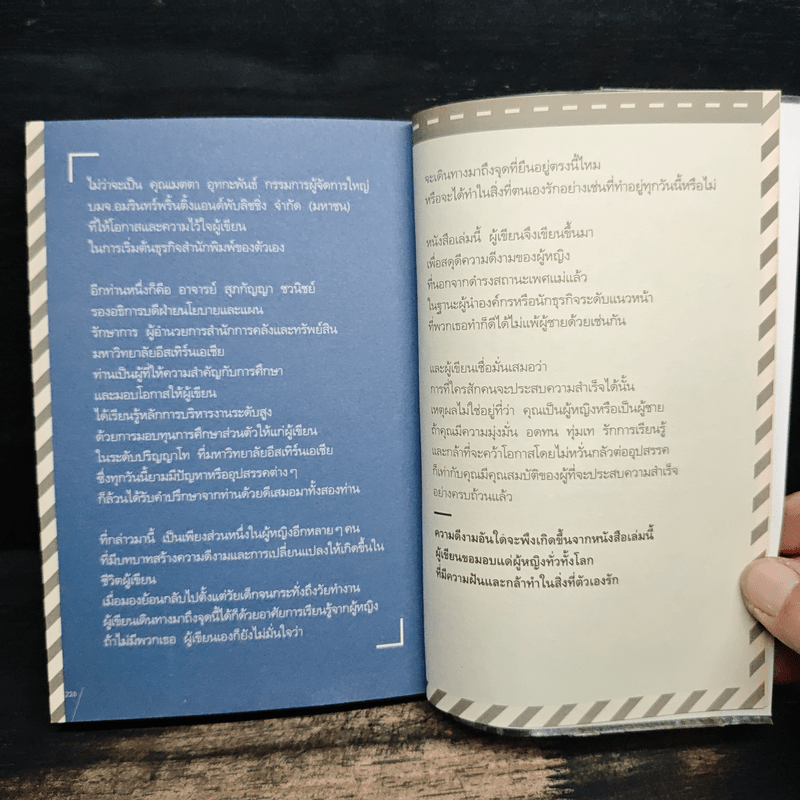 ไม่ว่าจะเป็น คุณเมตตา อุทกะพันธ์ุ กรรมการผู้จัดการใหญ่
บมจ.อมรินทร์พริ้นติ้งแอนด์พับลิชชิ่ง จำกัด (มหาชน)
ที่ให้โอกาสและความไว้ใจผู้เขียน
ในการเริ่มต้นธุรกิจสำนักพิมพ์ของตัวเอง
อีกท่านหนึ่งก็คือ อาจารย์ สุภกัญญา ชวนิชย์
รองอธิการบดีฝ่ายนโยบายและแผน
รักษาการ ผู้อำนวยการสำนักการคลังและทรัพย์สิน
มหาวิทยาลัยอีสเทิร์นเอเชีย
ท่านเป็นผู้ที่ให้ความสำคัญกับการศึกษา
และมอบโอกาสให้ผู้เขียน
ได้เรียนรู้หลักการบริหารงานระดับสูง
ด้วยการมอบทุนการศึกษาส่วนตัวให้แก่ผู้เขียน
ในระดับปริญญาโท ที่มหาวิทยาลัยอีสเทิร์นเอเชีย
ซึ่งทุกวันนี้ยามมีปัญหาหรืออุปสรรคต่างๆ
ก็ล้วนได้รับคำปรึกษาจากท่านด้วยดีเสมอมาทั้งสองท่าน
ที่กล่าวมานี้ เป็นเพียงส่วนหนึ่งในผู้หญิงอีกหลายๆ คน
ที่มีบทบาทสร้างความดีงามและการเปลี่ยนแปลงให้เกิดขึ้นใน
ชีวิตผู้เขียน
เมื่อมองย้อนกลับไปตั้งแต่วัยเด็กจนกระทั่งถึงวัยทำงาน
ผู้เขียนเดินทางมาถึงจุดนี้ได้ก็ด้วยอาศัยการเรียนรู้จากผู้หญิง
ถ้าไม่มีพวกเธอ ผู้เขียนเองก็ยังไม่มั่นใจว่า
226
จะเดินทางมาถึงจุดที่ยืนอยู่ตรงนี้ไหม
หรือจะได้ทำในสิ่งที่ตนเองรักอย่างเช่นที่ทำอยู่ทุกวันนี้หรือไม่
หนังสือเล่มนี้ ผู้เขียนจึงเขียนขึ้นมา
เพื่อสดุดีความดีงามของผู้หญิง
ที่นอกจากดำรงสถานะเพศแม่แล้ว
ในฐานะผู้นำองค์กรหรือนักธุรกิจระดับแนวหน้า
ที่พวกเธอทำก็ดีได้ไม่แพ้ผู้ชายด้วยเช่นกัน
และผู้เขียนเชื่อมั่นเสมอว่า
การที่ใครสักคนจะประสบความสำเร็จได้นั้น
เหตุผลไม่ใช่อยู่ที่ว่า คุณเป็นผู้หญิงหรือเป็นผู้ชาย
ถ้าคุณมีความมุ่งมั่น อดทน ทุ่มเท รักการเรียนรู้
และกล้าที่จะคว้าโอกาสโดยไม่หวั่นกลัวต่ออุปสรรค
ก็เท่ากับคุณมีคุณสมบัติของผู้ที่จะประสบความสำเร็จ
อย่างครบถ้วนแล้ว
ความดีงามอันใดจะพึงเกิดขึ้นจากหนังสือเล่มนี้
ผู้เขียนขอมอบแด่ผู้หญิงทั่วทั้งโลก
ที่มีความฝันและกล้าทำในสิ่งที่ตัวเองรัก